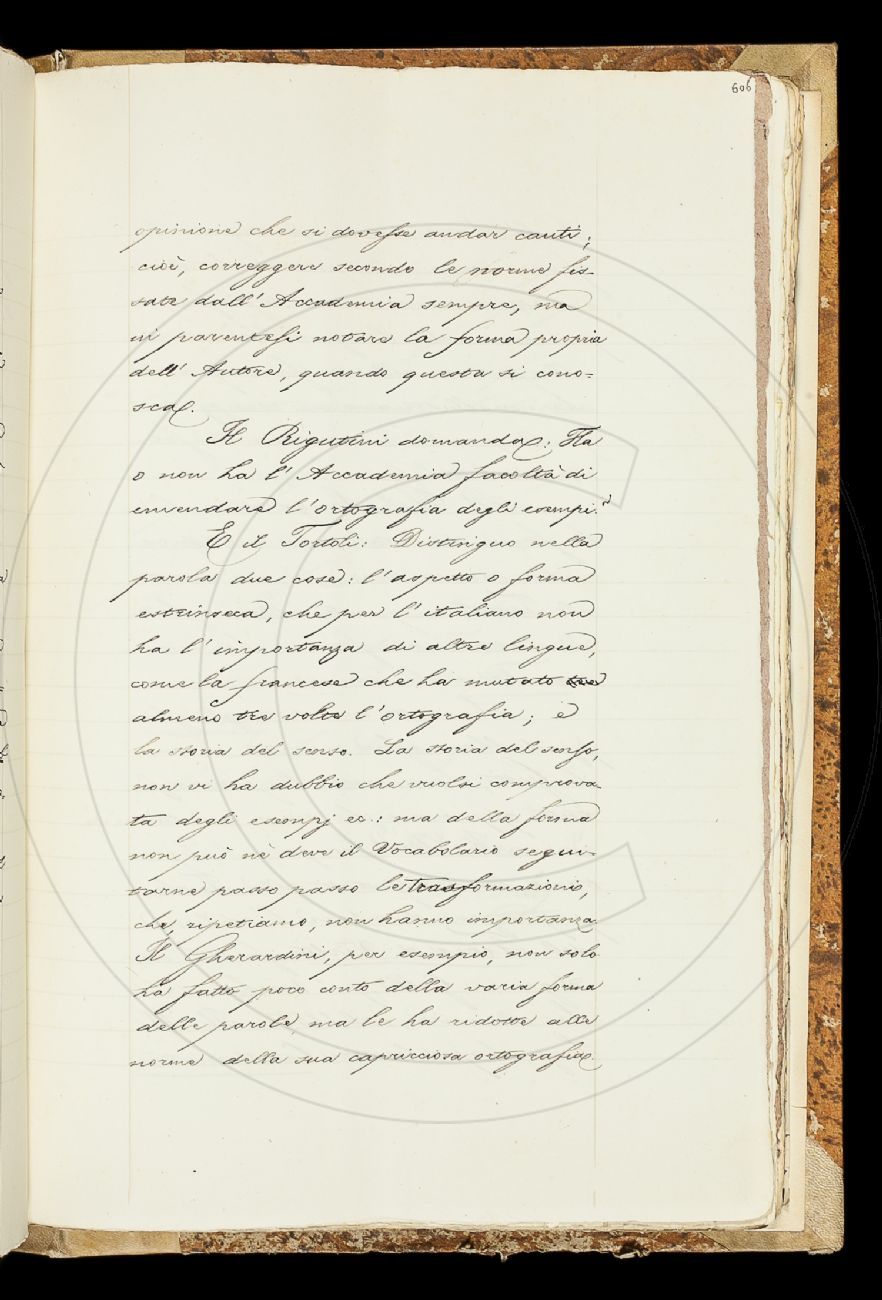 606
opinione che si dovesse andar cauti;
cioè, correggere secondo le norme fis-
sate dall' Accademia sempre, ma
in parentesi notare la forma propria
dell' Autore, quando questa si cono=
sca.
Il Rigutini domanda: Ha
o non ha l' Accademia facoltà di
emendare l'ortografia degli esempi?
E il Tortoli: Distinguo nella
parola due cose: l'aspetto o forma
estrinseca, che per l'italiano non
ha l'importanza di altre lingue,
come la francese che ha mutato tre
almeno tre volte l'ortografia; e
la storia del senso. La storia del senso,
non vi ha dubbio che vuolsi comprova-
ta degli esempj ec.: ma della forma
non può nè deve il Vocabolario segui-
tarne passo passo le trasformazioni,
che, ripetiamo, non hanno importanza.
Il Gherardini, per esempio, non solo
ha fatto poco conto della varia forma
delle parole ma le ha ridotte alle
norme della sua capricciosa ortografia.